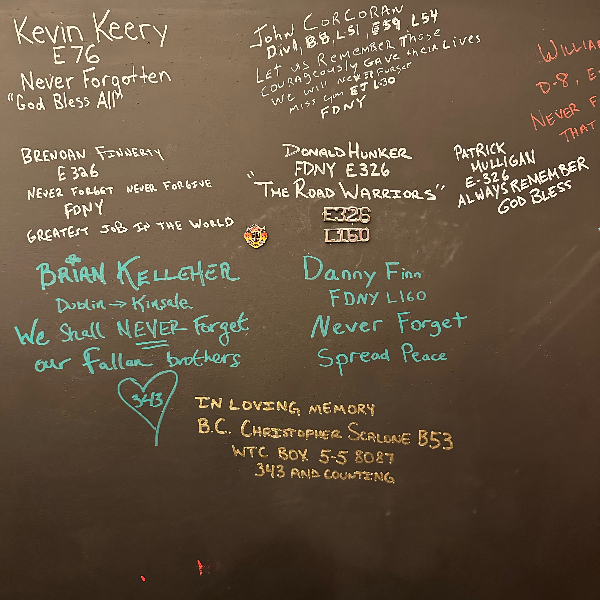 Kevin Keery
E76
Never Forgotten
"God Bless All"
John CORCORAN
Div 1, B.8, L51, E59 L54
LET US Remember Those
COURAGEOUSLY GAVE their Lives
WE WILL NEVER Forget
MISS
L-30
FDNY
WILLIA
D-8, E
NEVER F
THAT
BRENDAN FINNERTY
E326
NEVER FORGET NEVER FORGIVE
FDNY
GREATEST JOB IN THE WORLD
DONALD HUNKER
FDNY E326
"THE ROAD WARRIORS"
E326
L160
PATRICK
MULLIGAN
E-326
ALWAYS REMEMBER
GOD BLESS
BRIAN KELLEHER
Dublin → Kinsale
We Shall NEVER Forget
our fallan brothers
343
Danny Finn
FDNY L160
Never Forget
Spread Peace
IN LOVING MEMORY
B.C. CHRISTOPHER SCALONE B53
WTC BOX 5-5 8087
343 AND COUNTING